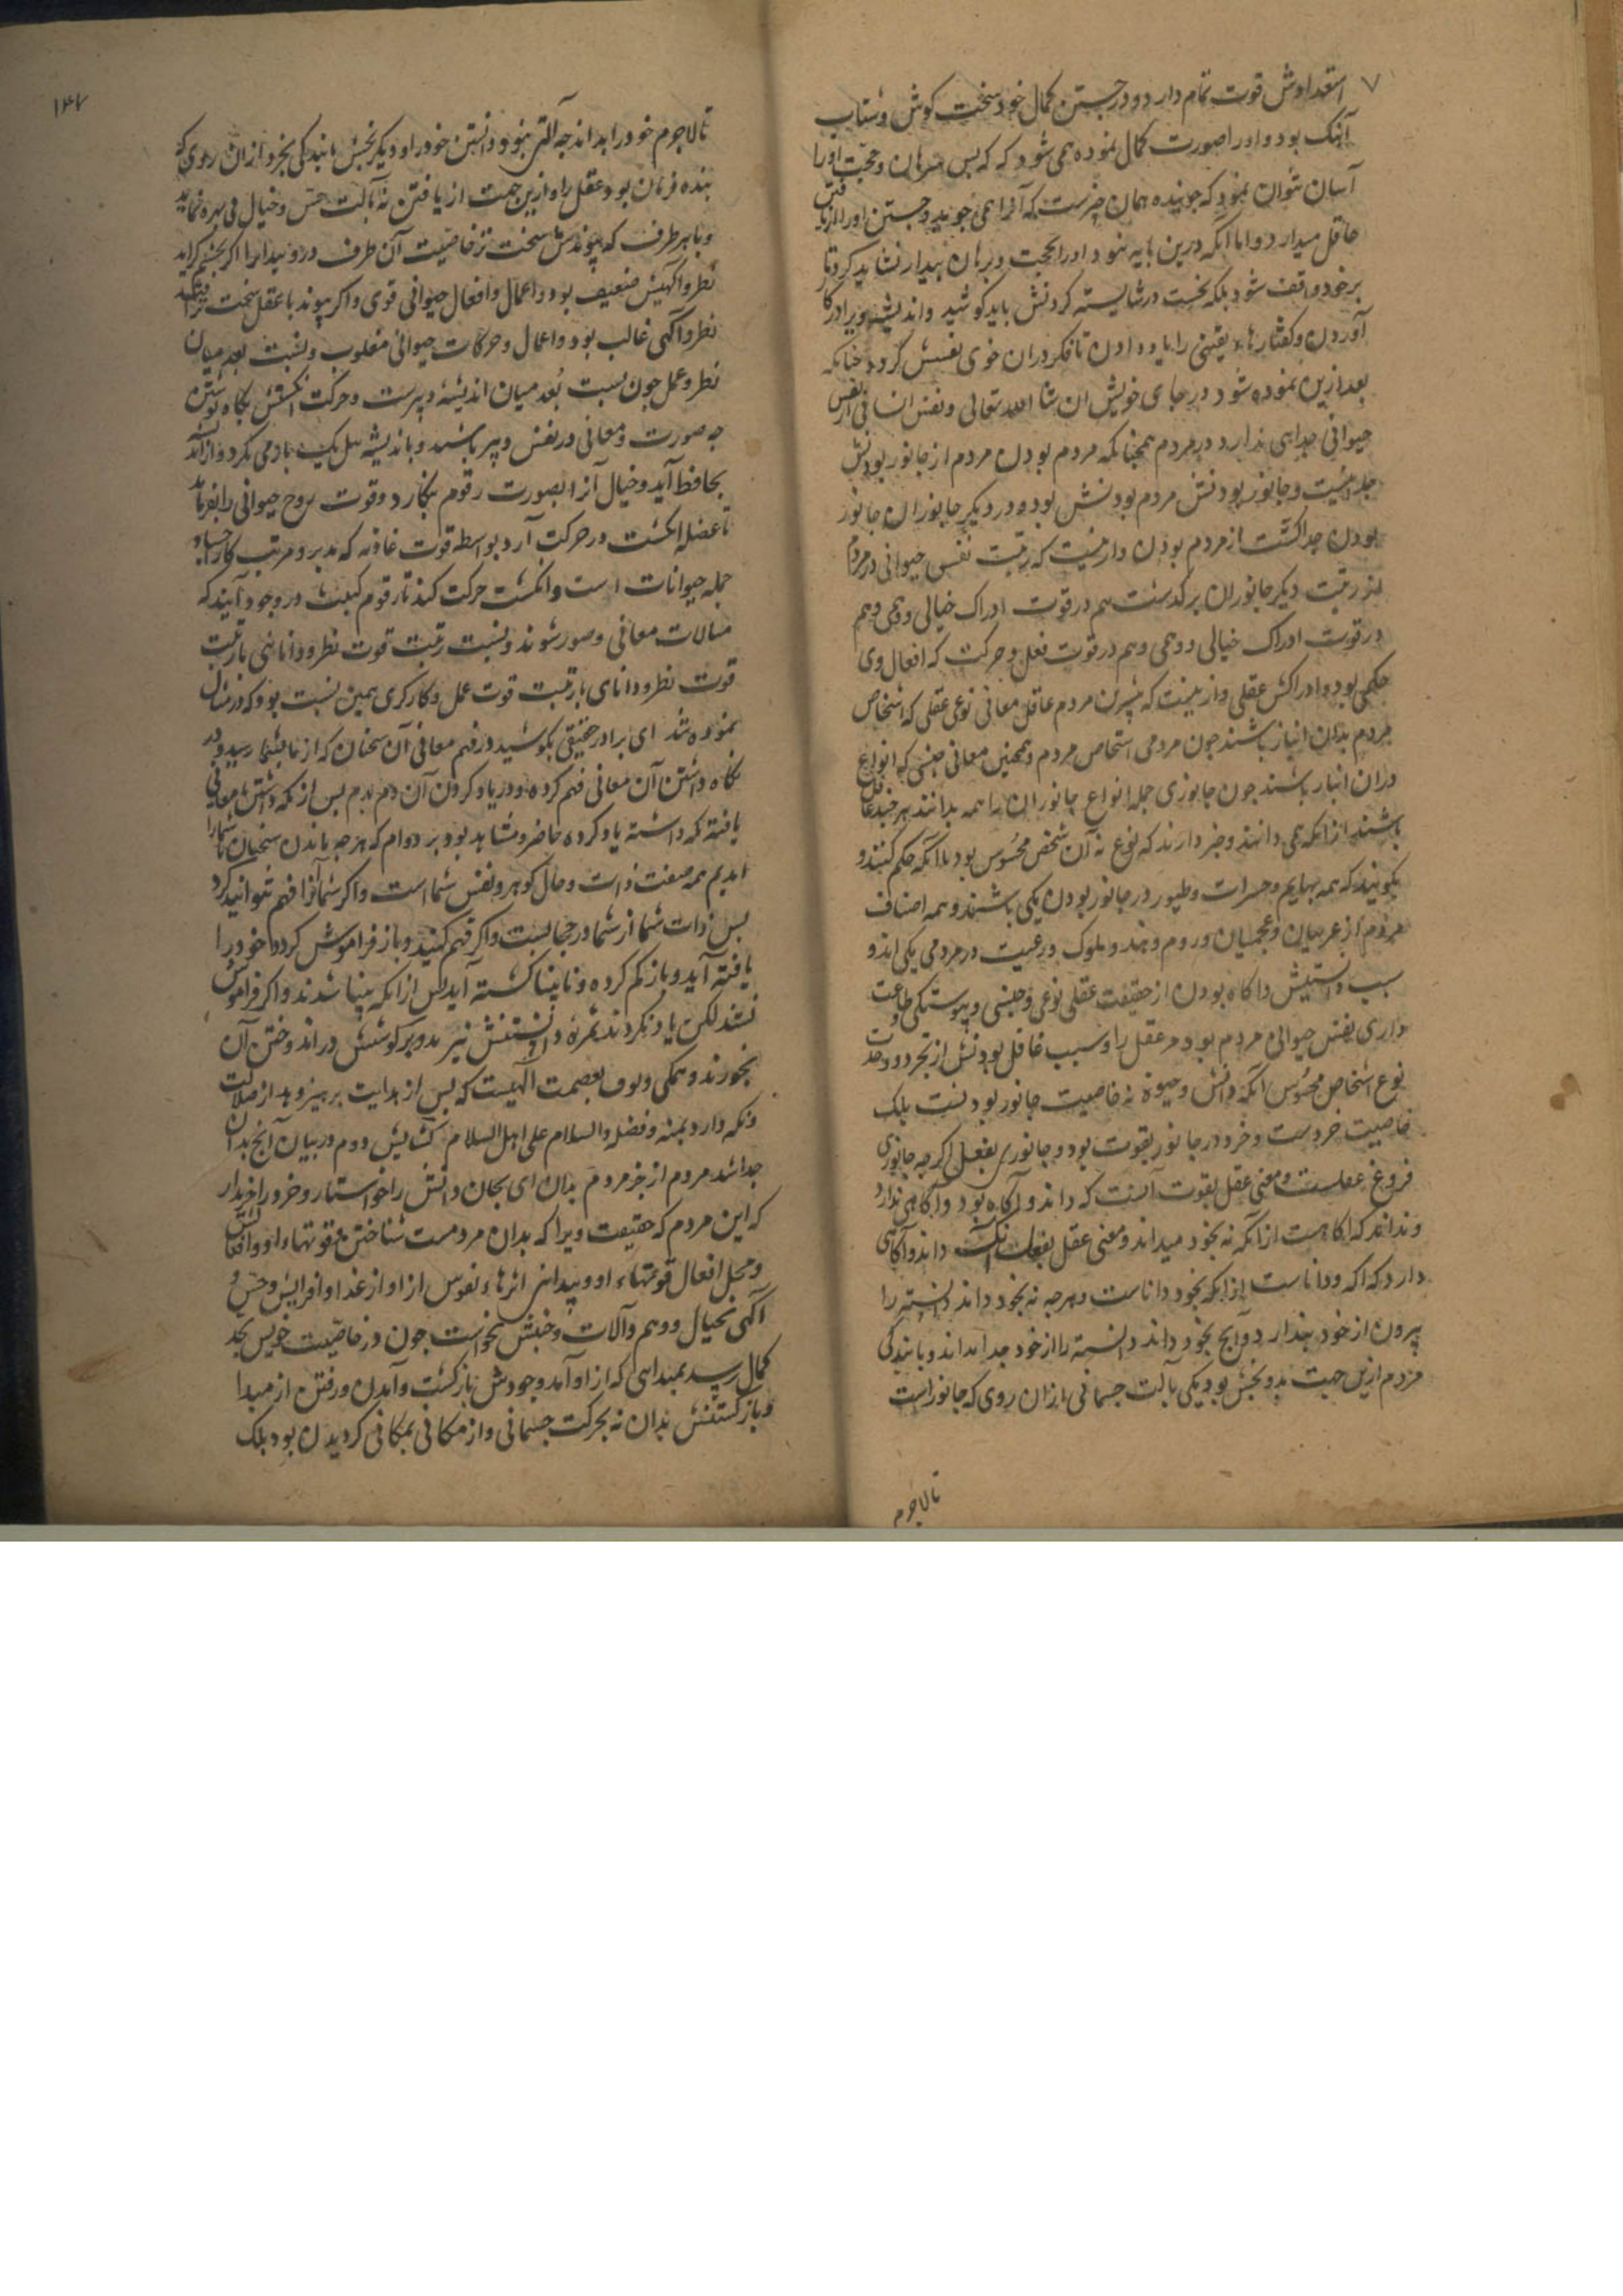 استعدادش قوت تمام دارد و در جستن کمال خود سخت کوش و شتاب
آهنک بود و او را صورت کمال نموده همی شود که که بس برهان و حجت او را
آسان بتوان نمود که جوینده همان چیزست که آنرا همی جوید و جستن او را از یافتن
غافل میدارد و اما آنکه درین پایه نبود او را بحجت و برهان بیدار نشاید کرد تا
بر خود واقف شود بلکه نخست در شایسته کردنش باید کوشید و اندیشه ویرا در کار
آوردن و کفتارهاء یقینی را یاد دادن تا فکر در آن خوی نفسش کردد چنانکه
بعد ازین نموده شود در جای خویش ان شا الله تعالی و نفس انسانی از نفس
حیوانی جدایی ندارد در مردم همچنانکه مردم بودن مردم از جانور بودنش
جدا نیست و جانور بودنش مردم بودنش بوده و در دیکر جانوران جانور
بودن جدا کشت از مردم بودن و ازینست که رتبت نفس حیوانی در مردم
از رتبت دیکر جانوران برکذشت هم در قوت ادراک خیالی و وهمی و هم
در قوت ادراک خیالی و وهمی و هم در قوت فعل و حرکت که افعال وی
حکمی بود و ادراکش عقلی و ازینست که بیشترین مردم عاقل معانی نوعی عقلی که اشخاص
مردم بدان انباز باشند چون مردمی اشخاص مردم و همچنین معانی جنسی که انواع
در آن انباز باشند چون جانوری جمله انواع جانوران را همه بدانند هر چند غافل
باشند از آنکه همی دانند و خبر دارند که نوع نه آن شخص محسوس بود با آنکه حکم کنند و
بکویند که همه بهایم و حشرات و طیور در جانور بودن یکی باشند و همه اصناف
مردم از عربیان و عجمیان و روم و هند و ملوک و رعیت در مردمی یکی اند و
سبب دانستنش و آکاه بودن از حقیقت عقلی نوعی و جنسی و پیوستکی و طاعت
داری نفس حیوانی مردم بود مر عقل را و سبب غافل بودنش از تجرد و وحدت
نوع اشخاص محسوس آنکه دانش و حیوة نه خاصیت جانور بودنست بلک
خاصیت خردست و خرد در جانور بقوت بود و جانوری بفعل اکرچه جانوری
فروغ عقلست و معنی عقل بقوت آنست که داند و آکاه بود و آکاهی ندارد
و نداند که آکاهست از آنکه نه بخود میداند و معنی عقل بفعل آنک داند و آکاهی
دارد که آکه و داناست از آنکه بخود داناست و هرچه نه بخود داند دانسته را
بیرون از خود پندارد و آنچ بخود داند دانسته را از خود جدا نداند و یابندکی
مردم ازین جهت بدو بخش بود یکی بآلت جسمانی از آن روی که جانور است
تا لاجرم
۱۴۷
تا لاجرم خود را بداند چه آلتی نبود دانستن خود را و دیکر بخش یابندکی بخرد از آن روی که
بنده فرمان بود عقل را و ازین جهت از یافتن نه بآلت حس و خیال بی بهره نماید
و با هر طرف که پیوندش سخت تر خاصیت آن طرف در و پیدا ترا اکر بخشم کراید
نظر و آکهیش ضعیف بود و اعمال و افعال حیوانی قوی و اکر پیوند با عقل سخت تر افتد
نظر و آکهی غالب بود و اعمال و حرکات حیوانی مغلوب و نسبت بعد میان
نظر و عمل چون نسبت بعد میان اندیشه دبیرست و حرکت انکشتش بکاه نوشتن
چه صورت و معانی در نفس دبیر باشد و باندیشه یک بیک یاد می کرد و از اندیشه
بحافظ آید و خیال آنرا بصورت رقوم بنکارد و قوت روح حیوانی را بفرماید
تا عضله انکشت در حرکت آرد بواسطه قوت غاذیه که مدبر و مرتب کار اجساد
جمله حیوانات است و انکشت حرکت کند تا رقوم کتابت در وجود آیند که
مثالات معانی و صور شوند و نسبت رتبت قوت نظر و دانایی با رتبت
قوت نظر و دانایی با رتبت قوت عمل و کارکری همین نسبت بود که در مثال
نموده شد ای برادر حقیقی بکوشید در فهم معانی آن سخنان که از ما بشما رسید و در
نکاه داشتن آن معانی فهم کرده و در یاد کردن آن دم بدم بس از نکه داشتن تا معانی
یافته نکه داشته یاد کرده حاضر و مشاهد بود بر دوام که هرچه ما بدن سخنان شما را
دادیم همه صفت ذات و حال کوهر و نفس شما است و اکر شما آنرا فهم نتوانید کرد
بس ذات شما از شما در حجابست و اکر فهم کنید و باز فراموش کردد خود را
یافته آید و باز کم کرده و نابینا کشته آید بس از آنکه بینا شدند و اکر فراموش
نشد لکن یاد نکردند ثمره دانستنش نیز بدو بر کوشش در اندوختن آن
نخورند و همکی وقوف بعصمت الهیست که بس از هدایت بر هیزد هد از ضلالت
و نکه دارد بمنه و فضله والسلام علی اهل السلام کشایش دوم در بیان آنچ بدان
جدا شد مردم از جز مردم بدان ای بجان دانش را خواستار و خرد را خریدار
که این مردم که حقیقت ویرا که بدان مردمست شناختن قوتهاء او و افعالش
و محل افعال قوتهاء او و پیدایی اثرهاء نفوس از او از غذا و افزایش و حس و
آکهی بخیال و وهم و آلات و جنبش بخواست چون در خاصیت خویش بحد
کمال رسید بمبدایی که از او آمد وجودش باز کشت و آمدن و رفتن از مبدا
و باز کشتنش بدان نه بحرکت جسمانی و از مکانی بمکانی کردیدن بود بلک